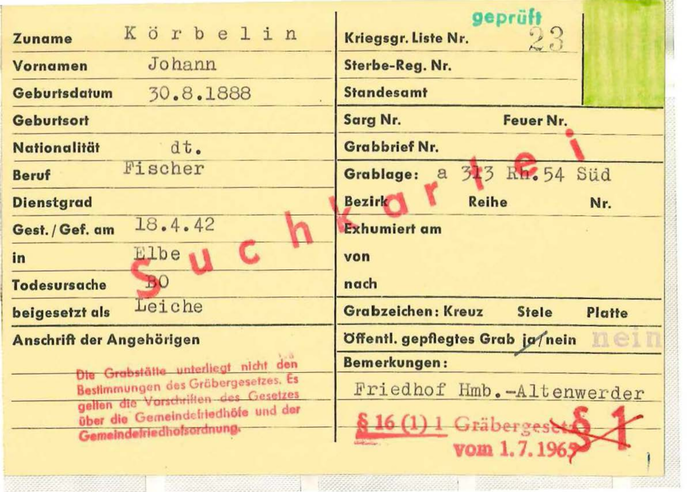 geprüft
Zuname Körbelin
Kriegsgr. Liste Nr. 23
Vornamen Johann
Sterbe-Reg. Nr.
Geburtsdatum 30.8.1888
Standesamt
Geburtsort
Sarg Nr. Feuer Nr.
Nationalität dt.
Grabbrief Nr.
Beruf Fischer
Grablage: a 313 Rh.54 Süd
Dienstgrad
Bezirk Reihe Nr.
Gest./Gef. am 18.4.42
Exhumiert am
in Elbe
von
Todesursache BO
nach
beigesetzt als Leiche
Grabzeichen: Kreuz Stele Platte
Suchkartei
Anschrift der Angehörigen
Öffentl. gepflegtes Grab ja/nein nein
Bemerkungen:
Friedhof Hmb.-Altenwerder
Die Grabstätte unterliegt nicht den
Bestimmungen des Gräbergesetzes. Es
gelten die Vorschriften des Gesetzes
über die Gemeindefriedhöfe und der
Gemeindefriedhofsordnung.
§ 16 (1) 1 Gräbergesetz § 1
vom 1.7.1965